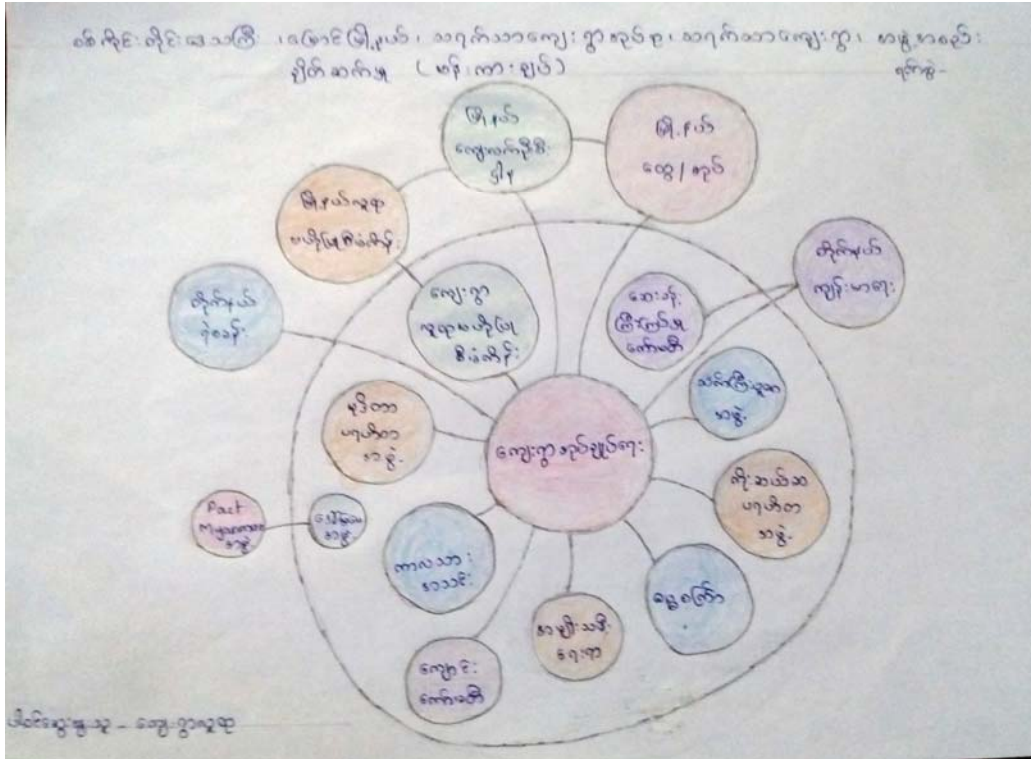 စစ်ကိုင်းတိုင်းဒေသကြီး ၊ မြောင်မြို့နယ်၊ သရက်သာကျေးရွာအုပ်စု၊ သရက်သာကျေးရွာ၊ အဖွဲ့အစည်း
ချိတ်ဆက်မှု (ဗန်းကားချပ်)
ရက်စွဲ-
မြို့နယ်
ကျေးလက်ဦးစီး
ဌာန
မြို့နယ်
ထွေ/အုပ်
မြို့နယ်လူထု
တိုက်နယ်
ကျန်းမာရေး
တိုက်နယ်
ရဲစခန်း
ကျေးရွာ
ဆေးခန်း
ကြီးကြပ်မှု
ကော်မတီ
သက်ကြီးပူဇော်
အဖွဲ့
မုဒိတာ
ပရဟိတ
အဖွဲ့
ကျေးရွာအုပ်ချုပ်ရေး
ကိုးဆယ်ဆ
ပရဟိတ
အဖွဲ့
Pact
Myanmar
အဖွဲ့
အဖွဲ့
ကာလသား
အသင်း
ဓမ္မစကြာ
အမျိုးသမီး
ရေးရာ
ကျောင်း
ကော်မတီ
ပါဝင်ဆွေးနွေးသူ - ကျေးရွာလူထု